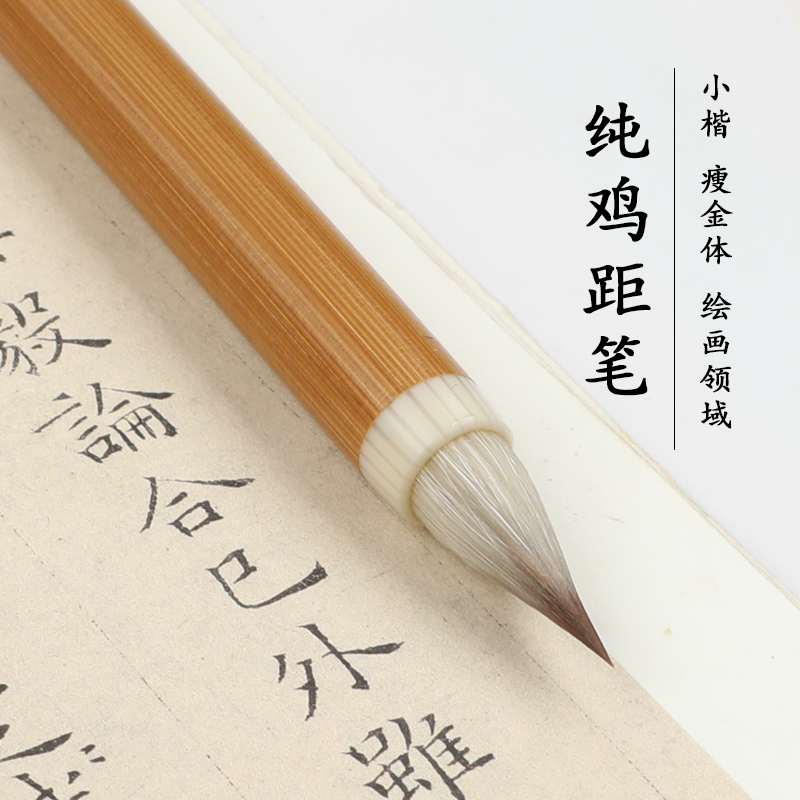 纯鸡距笔
小楷 瘦金体 绘画领域
毅論合已外雖